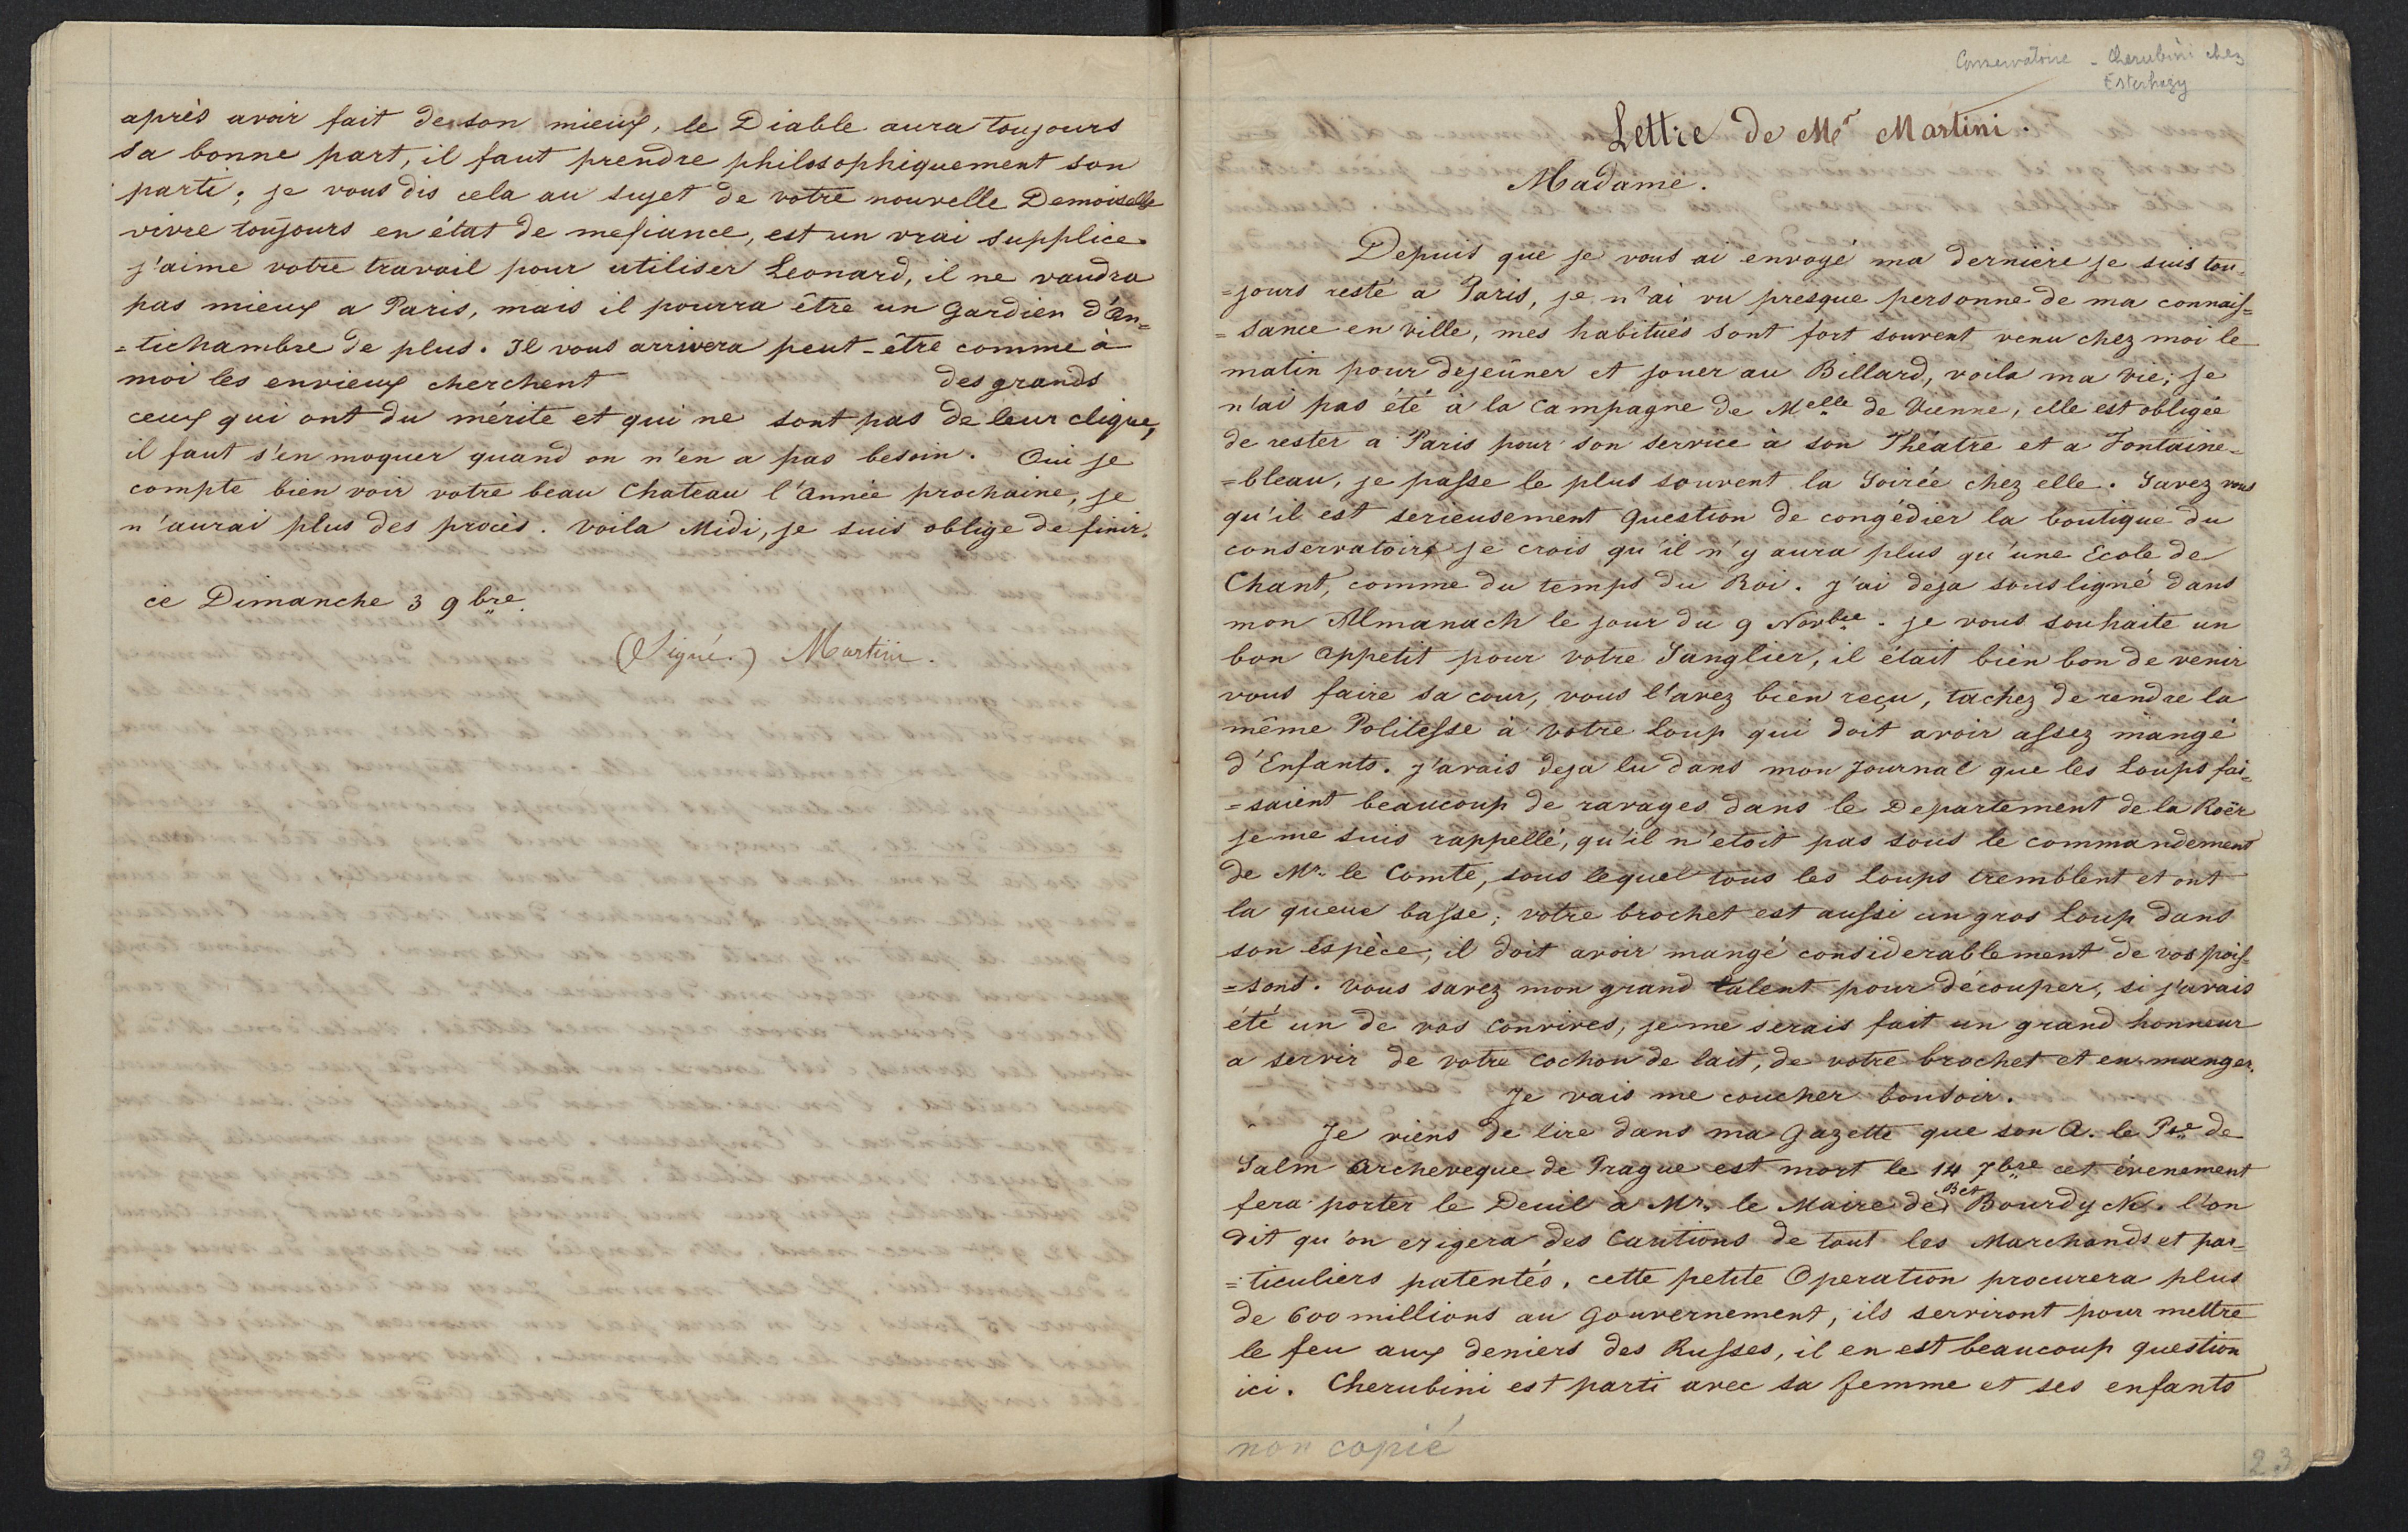 après avoir fait de son mieux, le Diable aura toujours
sa bonne part, il faut prendre philosophiquement son
parti; je vous dis cela au sujet de votre nouvelle Demoiselle
vivre toujours en état de mefiance, est un vrai supplice.
j'aime votre travail pour utiliser Leonard, il ne vaudra
pas mieux a Paris, mais il pourra être un gardien d'An=
=tichambre de plus. Il vous arrivera peut-être comme à
moi les envieux cherchent des grands
ceux qui ont du mérite et qui ne sont pas de leur clique,
il faut s'en moquer quand on n'en a pas besoin. Oui je
compte bien voir votre beau Chateau l'Année prochaine, je
n'aurai plus des procès. Voila Midi, je suis oblige de finir.
ce Dimanche 3 9bre.
(Signé.) Martini.
Conservatoire - Cherubini chez
Esterhazy
Lettre de Mr Martini.
Madame.
Depuis que je vous ai envoyé ma derniere je suis tou=
=jours resté a Paris, je n'ai vu presque personne de ma connais=
=sance en ville, mes habitués sont fort souvent venu chez moi le
matin pour dejeûner et jouer au Billard, voila ma vie; je
n'ai pas été à la Campagne de Melle de Vienne, elle est obligée
de rester a Paris pour son service à son Théatre et a Fontaine=
=bleau, je passe le plus souvent la Soirée chez elle. Savez vous
qu'il est serieusement question de congédier la boutique du
conservatoire je crois qu'il n'y aura plus qu'une Ecole de
Chant, comme du temps du Roi. J'ai deja sousligné dans
mon Almanach le jour du 9 Novbre. je vous souhaite un
bon appetit pour votre Sanglier, il était bien bon de venir
vous faire sa cour, vous l'avez bien reçu, tachez de rendre la
même Politesse à votre Loup qui doit avoir assez mangé
d'Enfants. J'avais deja lu dans mon Journal que les Loups fai=
=saient beaucoup de ravages dans le Departement de la Roër
je me suis rappellé, qu'il n'etoit pas sous le commandement
de Mr. le Comte, sous lequel tous les Loups tremblent et ont
la queue basse; votre brochet est aussi un gros Loup dans
son espèce; il doit avoir mangé considerablement de vos pois=
=sons. Vous savez mon grand talent pour découper, si j'avais
été un de vos convives, je me serais fait un grand honneur
a servir de votre cochon de lait, de votre brochet et en manger.
Je vais me coucher bonsoir.
Je viens de lire dans ma Gazette que son A. le Pce de
Salm Archeveque de Prague est mort le 14 7bre cet évenement
fera porter le Deuil à Mr. le Maire de Bet Bourdyck. l'on
dit qu'on erigera des Cautions de tout les Marchands et par=
=ticuliers patentés, cette petite Operation procurera plus
de 600 millions au Gouvernement, ils serviront pour mettre
le feu aux deniers des Russes, il en est beaucoup question
ici. Cherubini est parti avec sa femme et ses enfants
non copié
23